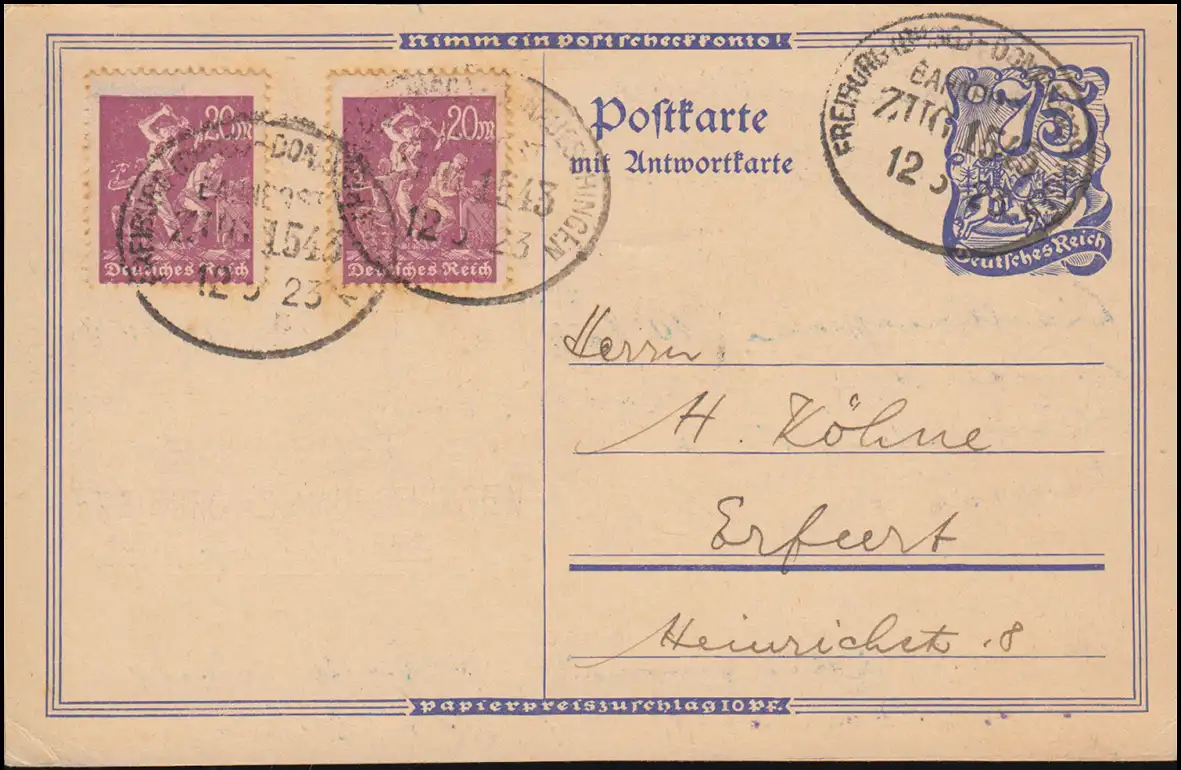 Nimm ein Postscheckkonto!
20m
20m
Deutsches Reich
Deutsches Reich
ZUG 1543
12 23
1543
12 23
DONAUESCHINGEN
Postkarte
mit Antwortkarte
FREIBURG
BAHNPOST
ZUG
12
75
Deutsches Reich
Herrn
H. Köhne
Erfurt
Heinrichstr. 8
Papierpreiszuschlag 10 Pf.